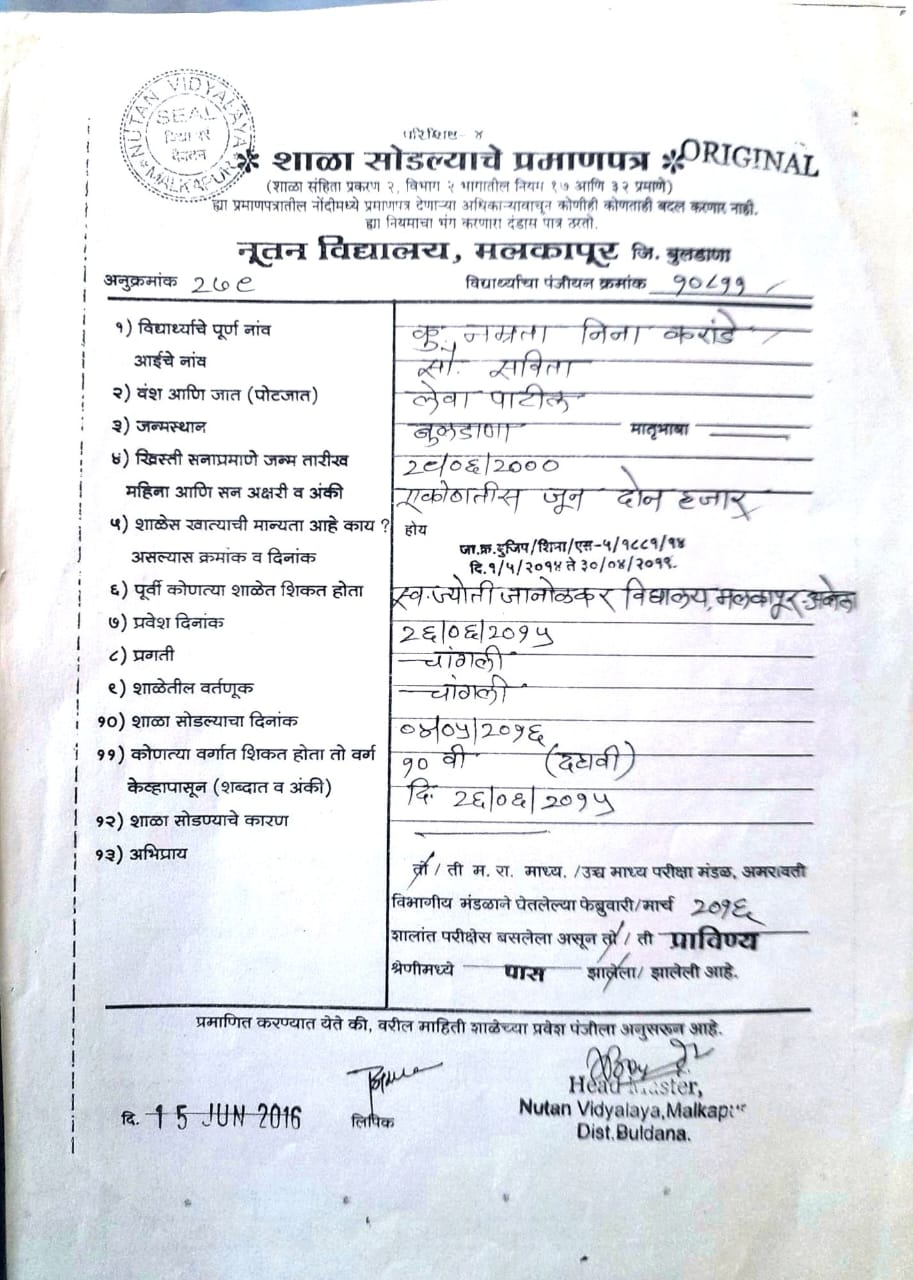 NUTAN VIDYALAYA
SEAL
MALKAPUR
परिशिष्ट - ४
* शाळा सोडल्याचे प्रमाणपत्र * ORIGINAL
(शाळा संहिता प्रकरण २, विभाग २ भागातील नियम १७ आणि ३२ प्रमाणे)
ह्या प्रमाणपत्रातील नोंदीमध्ये प्रमाणपत्र देणाऱ्या अधिकाऱ्यावाचून कोणीही कोणताही बदल करणार नाही.
ह्या नियमाचा भंग करणारा दंडास पात्र ठरतो.
नूतन विद्यालय, मलकापूर जि. बुलडाणा
अनुक्रमांक २७९ विद्यार्थ्याचा पंजीयन क्रमांक १०८११
१) विद्यार्थ्याचे पूर्ण नांव कु. नम्रता निना करांडे
आईचे नांव सौ. सविता
२) वंश आणि जात (पोटजात) लेवा पाटील
३) जन्मस्थान बुलडाणा मातृभाषा
४) ख्रिस्ती सनाप्रमाणे जन्म तारीख २९/०६/२०००
महिना आणि सन अक्षरी व अंकी एकोणतीस जून दोन हजार
५) शाळेस खात्याची मान्यता आहे काय ? होय
जा.क्र.दुजिप/शिना/एस-५/१८८१/१४
असल्यास क्रमांक व दिनांक दि.१/५/२०१४ ते ३०/०४/२०१९.
६) पूर्वी कोणत्या शाळेत शिकत होता स्व. ज्योती जानोळकर विद्यालय, मलकापूर-अकोला
७) प्रवेश दिनांक २६/०६/२०१५
८) प्रगती चांगली
९) शाळेतील वर्तणूक चांगली
१०) शाळा सोडल्याचा दिनांक ०४/०५/२०१६
११) कोणत्या वर्गात शिकत होता तो वर्ग १० वी (दहावी)
केव्हापासून (शब्दात व अंकी) दि. २६/०६/२०१५
१२) शाळा सोडण्याचे कारण
१३) अभिप्राय
तो / ती म. रा. माध्य. /उच्च माध्य परीक्षा मंडळ, अमरावती
विभागीय मंडळाने घेतलेल्या फेब्रुवारी/मार्च २०१६
शालांत परीक्षेस बसलेला असून तो / ती प्राविण्य
श्रेणीमध्ये पास झालेला/ झालेली आहे.
प्रमाणित करण्यात येते की, वरील माहिती शाळेच्या प्रवेश पंजीला अनुसरून आहे.
दि. 15 JUN 2016 लिपिक
Head Master,
Nutan Vidyalaya,Malkapur
Dist.Buldana.